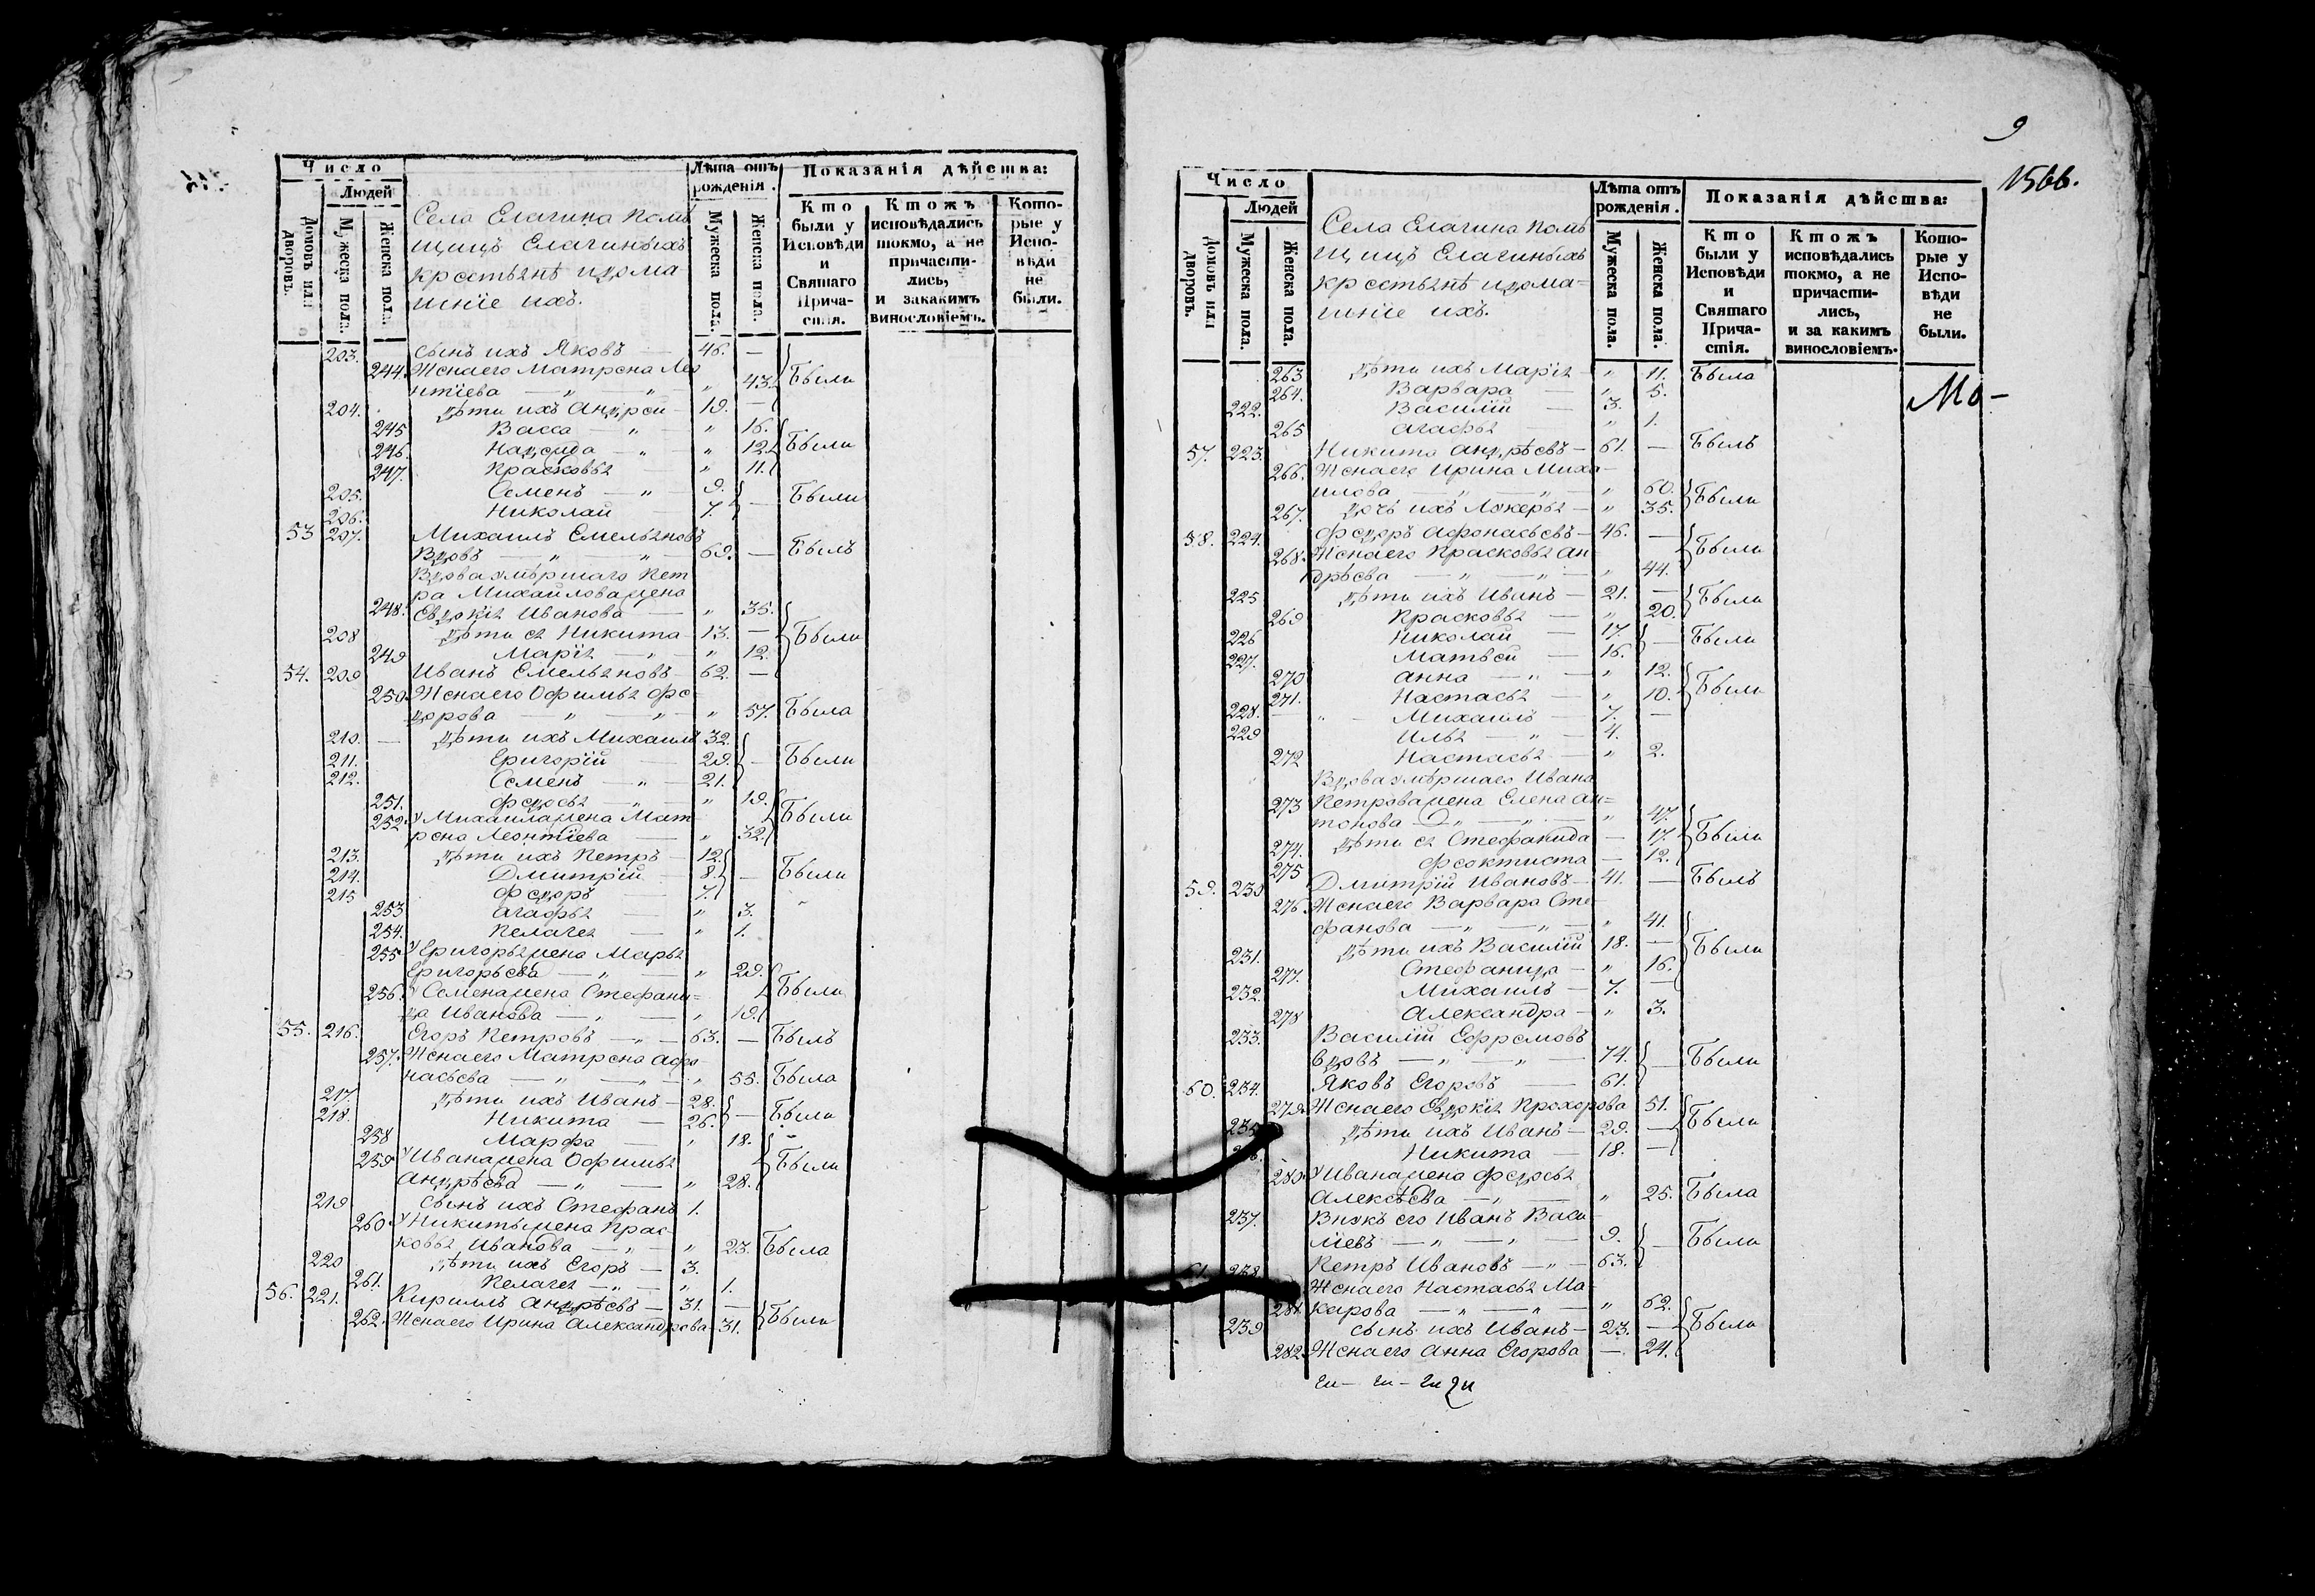 Число
Людей
Лѣта отъ рожденія.
Показанія дѣйства:
Домовъ или дворовъ.
Мужеска пола.
Женска пола.
Села Елагина Помѣ
щицъ Елагиныхъ
крестьянѣ идома
шніе ихъ.
Мужеска пола.
Женска пола.
Кто были у Исповѣди и Святаго Прича- стія.
Ктожъ исповѣдались токмо, а не причасти- лись, и закакимъ винословіемъ.
Кото- рые у Испо- вѣди не были.
203. сынъ ихъ Яковъ — 46. —
244. Женаего Матрена Лео
нтіева — „ — „ 43. Были
204. дѣти ихъ Андрей — 19. —
245 Васса — „ — „ 16.
246. Надежда — „ — „ 12. Были
247. Прасковья — „ 11.
205. Семенъ — „ — 9.
206. Николай — 7. — Были
53 207. Михаилъ Емельяновъ
Вдовъ — „ — „ — 69. — Былъ
Вдоваумѣршаго Пет
ра Михайловажена
248. Евдокія Иванова — „ 35.
208 дѣти ея Никита — 13. — Были
249 Марія — „ — „ 12.
54. 209 Иванъ Емельяновъ — 62. —
250. Женаего Офимья Фе=
дорова — „ — „ — „ 57. Была
210. — дѣти ихъ Михаилъ 32.
211. Григорій — 29. — Были
212. Семенъ — „ — 21.
251. Федосья — „ — „ 19.
252. уМихаилажена Мат Были
рена Леонтіева — „ 32.
213. дѣти ихъ Петръ — 12.
214. Дмитрій — 8. — Были
215 Федоръ — 7.
253 Агафья — „ 3.
254. Пелагея — „ 1.
255 уГригорьяжена Марья
Григорьева — „ — „ 29.
256. уСеменажена Стефани= Были
да Иванова — „ — „ 19.
55. 216. Егоръ Петровъ — „ — 63. — Былъ
257. Женаего Матрена Афо
насьева — „ — „ — „ 55. Была
217. дѣти ихъ Иванъ — 28.
218. Никита — 26. — Были
258 Марфа — „ 18.
259 уИванажена Офимья Были
Андрѣева — „ — „ 28.
219 сынъ ихъ Стефанъ 1.
260 уНикитыжена Прас-
ковья Иванова — „ — „ 23. Была
220 дѣти ихъ Егоръ — 3.
261. Пелагея — „ — „ 1.
56. 221. Кирилъ Андрѣевъ — 31. —
262. Женаего Ирина Александрова 31. Были
9
1566.
Число
Людей
Лѣта отъ рожденія.
Показанія дѣйства:
Домовъ или дворовъ.
Мужеска пола.
Женска пола.
Села Елагина Помѣ
щицъ Елагиныхъ
крестьянѣ идома=
шніе ихъ.
Мужеска пола.
Женска пола.
Кто были у Исповѣди и Святаго Прича- стія.
Ктожъ исповѣдались токмо, а не причасти- лись, и за какимъ винословіемъ.
Кото- рые у Испо- вѣди не были.
263 дѣти ихъ Марія — „ 11. Была
264. Варвара — „ 5.
Мо-
222. Василій — 3.
265 Агафья „ 1.
57. 223. Никита Андрѣевъ — 61. — Былъ
266. Женаего Ирина Миха-
илова — „ — „ — „ 60. Были
267. дочь ихъ Лукерья — „ 35.
58. 224. Федоръ Афонасьевъ — 46. —
268. Женаего Прасковья Ан- Были
дрѣева — „ — „ — „ 44.
225 дѣти ихъ Иванъ — 21. — Были
269 Прасковья — „ 20.
226 Николай — 17. — Были
227. Матвей — 16.
270 Анна — „ — „ 12. Были
271. Настасья — „ 10.
228. — „ — Михаилъ — 7. —
229 Илья — „ — 4.
272 Настасья — „ 2.
Вдоваумѣршаго Ивана
273 Петроважена Елена Ан=
тонова — „ — „ — „ 47. Были
274. дѣти ея Стефанида — 17.
275 Феоктиста — 12.
59. 230 Дмитрій Ивановъ — 41. — Былъ
276. Женаего Варвара Сте-
фанова — „ — „ — „ 41.
231. дѣти ихъ Василій 18. — Были
277. Стефанида — „ 16.
232. Михаилъ — 7. —
278 Александра — „ 3.
233. Василій Ефремовъ
вдовъ — „ „ — 74. — Были
60. 234. Яковъ Егоровъ — 61.
279. Женаего Евдокія Прохорова 51.
235. дѣти ихъ Иванъ — 29. — Были
236. Никита — 18. —
280. уИванажена Федосья
Алексѣева — „ — „ 25. Была
237. Внукъ его Иванъ Васи
ліевъ — „ — „ — 9. — Были
61. 238. Петръ Ивановъ — „ — 63.
Женаего Настасья Ма-
281. карова — „ — „ — „ 62.
239 сынъ ихъ Иванъ — 23. — Были
282. Женаего Анна Егорова — 24.